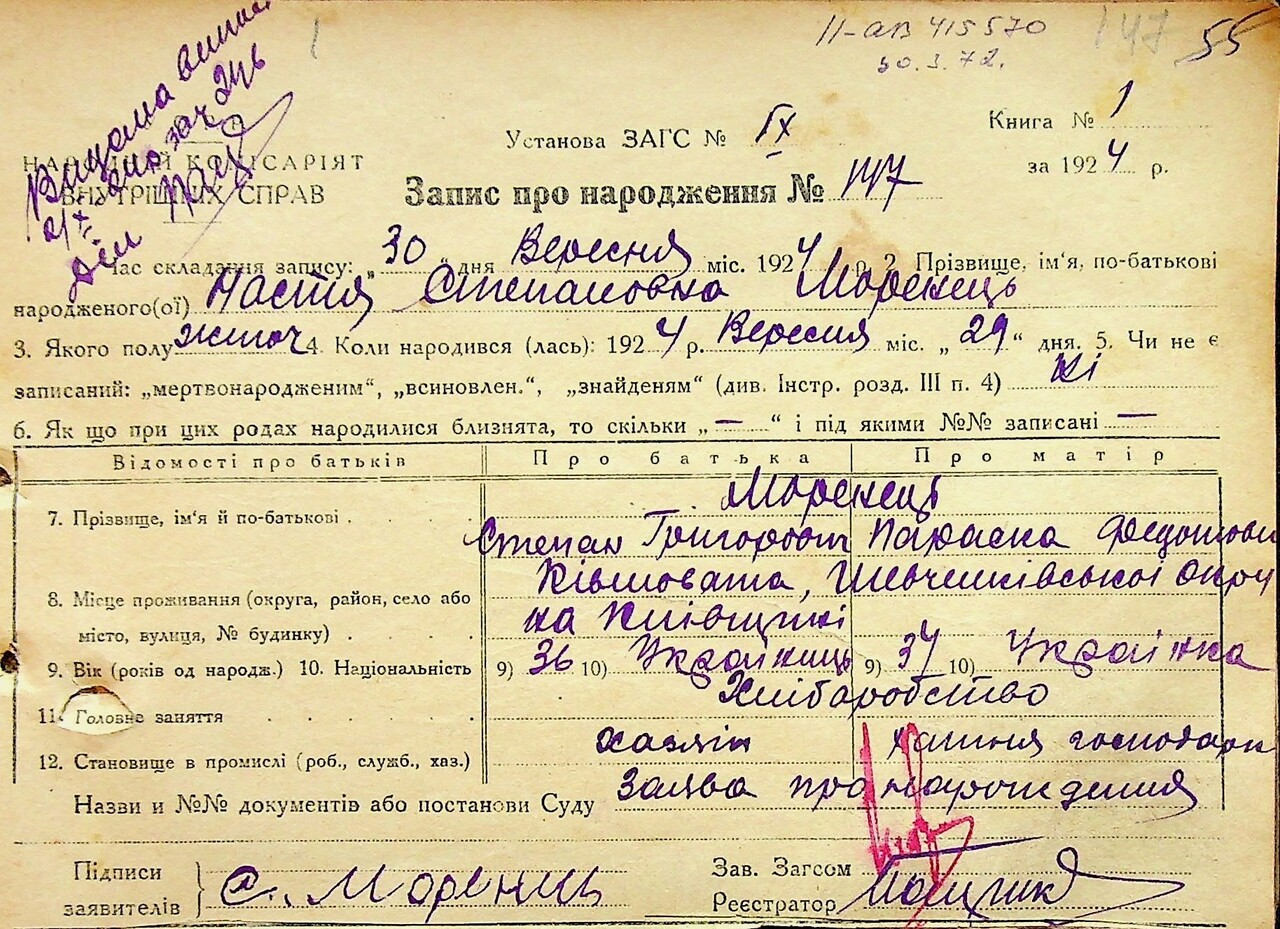 II-АВ 415570 147 55
30.3.72.
Видана випис
за № 246
Книга № 1
Установа ЗАГС № IX
за 1924 р.
НАРОДНІЙ КОМІСАРІЯТ
ВНУТРІШНИХ СПРАВ
Запис про народження № 147
Час складання запису: „30“ дня Вересня міс. 1924 р. 2. Прізвище, ім'я, по-батькові
народженого(ої) Настя Степановна Моренець
3. Якого полу жіноч 4. Коли народився (лась): 1924 р. Вересня міс. „29“ дня. 5. Чи не є
записаний: „мертвонародженим“, „всиновлен.“, „знайденям“ (див. Інстр. розд. III п. 4) Ні
6. Як що при цих родах народилися близнята, то скільки „—“ і під якими №№ записані —
Відомості про батьків Про батька Про матір
Моренець
7. Прізвище, ім'я й по-батькові
Степан Григорович Параска Федотовн
Ківшовата, Шевченківської Окру
8. Місце проживання (округа, район, село або
на Київщині
місто, вулиця, № будинку)
9. Вік (років од народж.) 10. Національність 9) 36 10) Українець 9) 34 10) Українка
Хліборобство
11. Головне заняття
хазяїн хатня господарк
12. Становище в промислі (роб., служб., хаз.)
Назви и №№ документів або постанови Суду Заява про нарождения
Підписи
заявителів С. Моренець
Зав. Загсом
Реєстратор